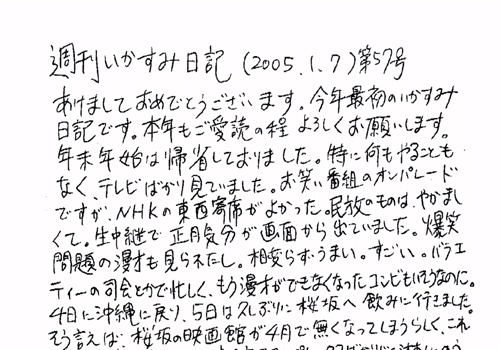 週刊いかすみ日記 (2005.1.7) 第57号
あけましておめでとうございます。今年最初のいかすみ
日記です。本年もご愛読の程 よろしくお願いします。
年末年始は帰省しておりました。特に何もやることも
なく、テレビばかり見ていました。お笑い番組のオンパレード
ですが、NHKの東西寄席がよかった。民放のものは、やかまし
くて。生中継で正月気分が画面から出ていました。爆笑
問題の漫才も見られたし。相変らず、うまい。すごい。バラエ
ティーの司会とかで忙しく、もう漫才ができなくなったコンビもいそうなのに。
4日に沖縄に戻り、5日は久しぶりに桜坂へ 飲みに行きました。
そう言えば、桜坂の映画館が4月で無くなってしまうらしく、これ